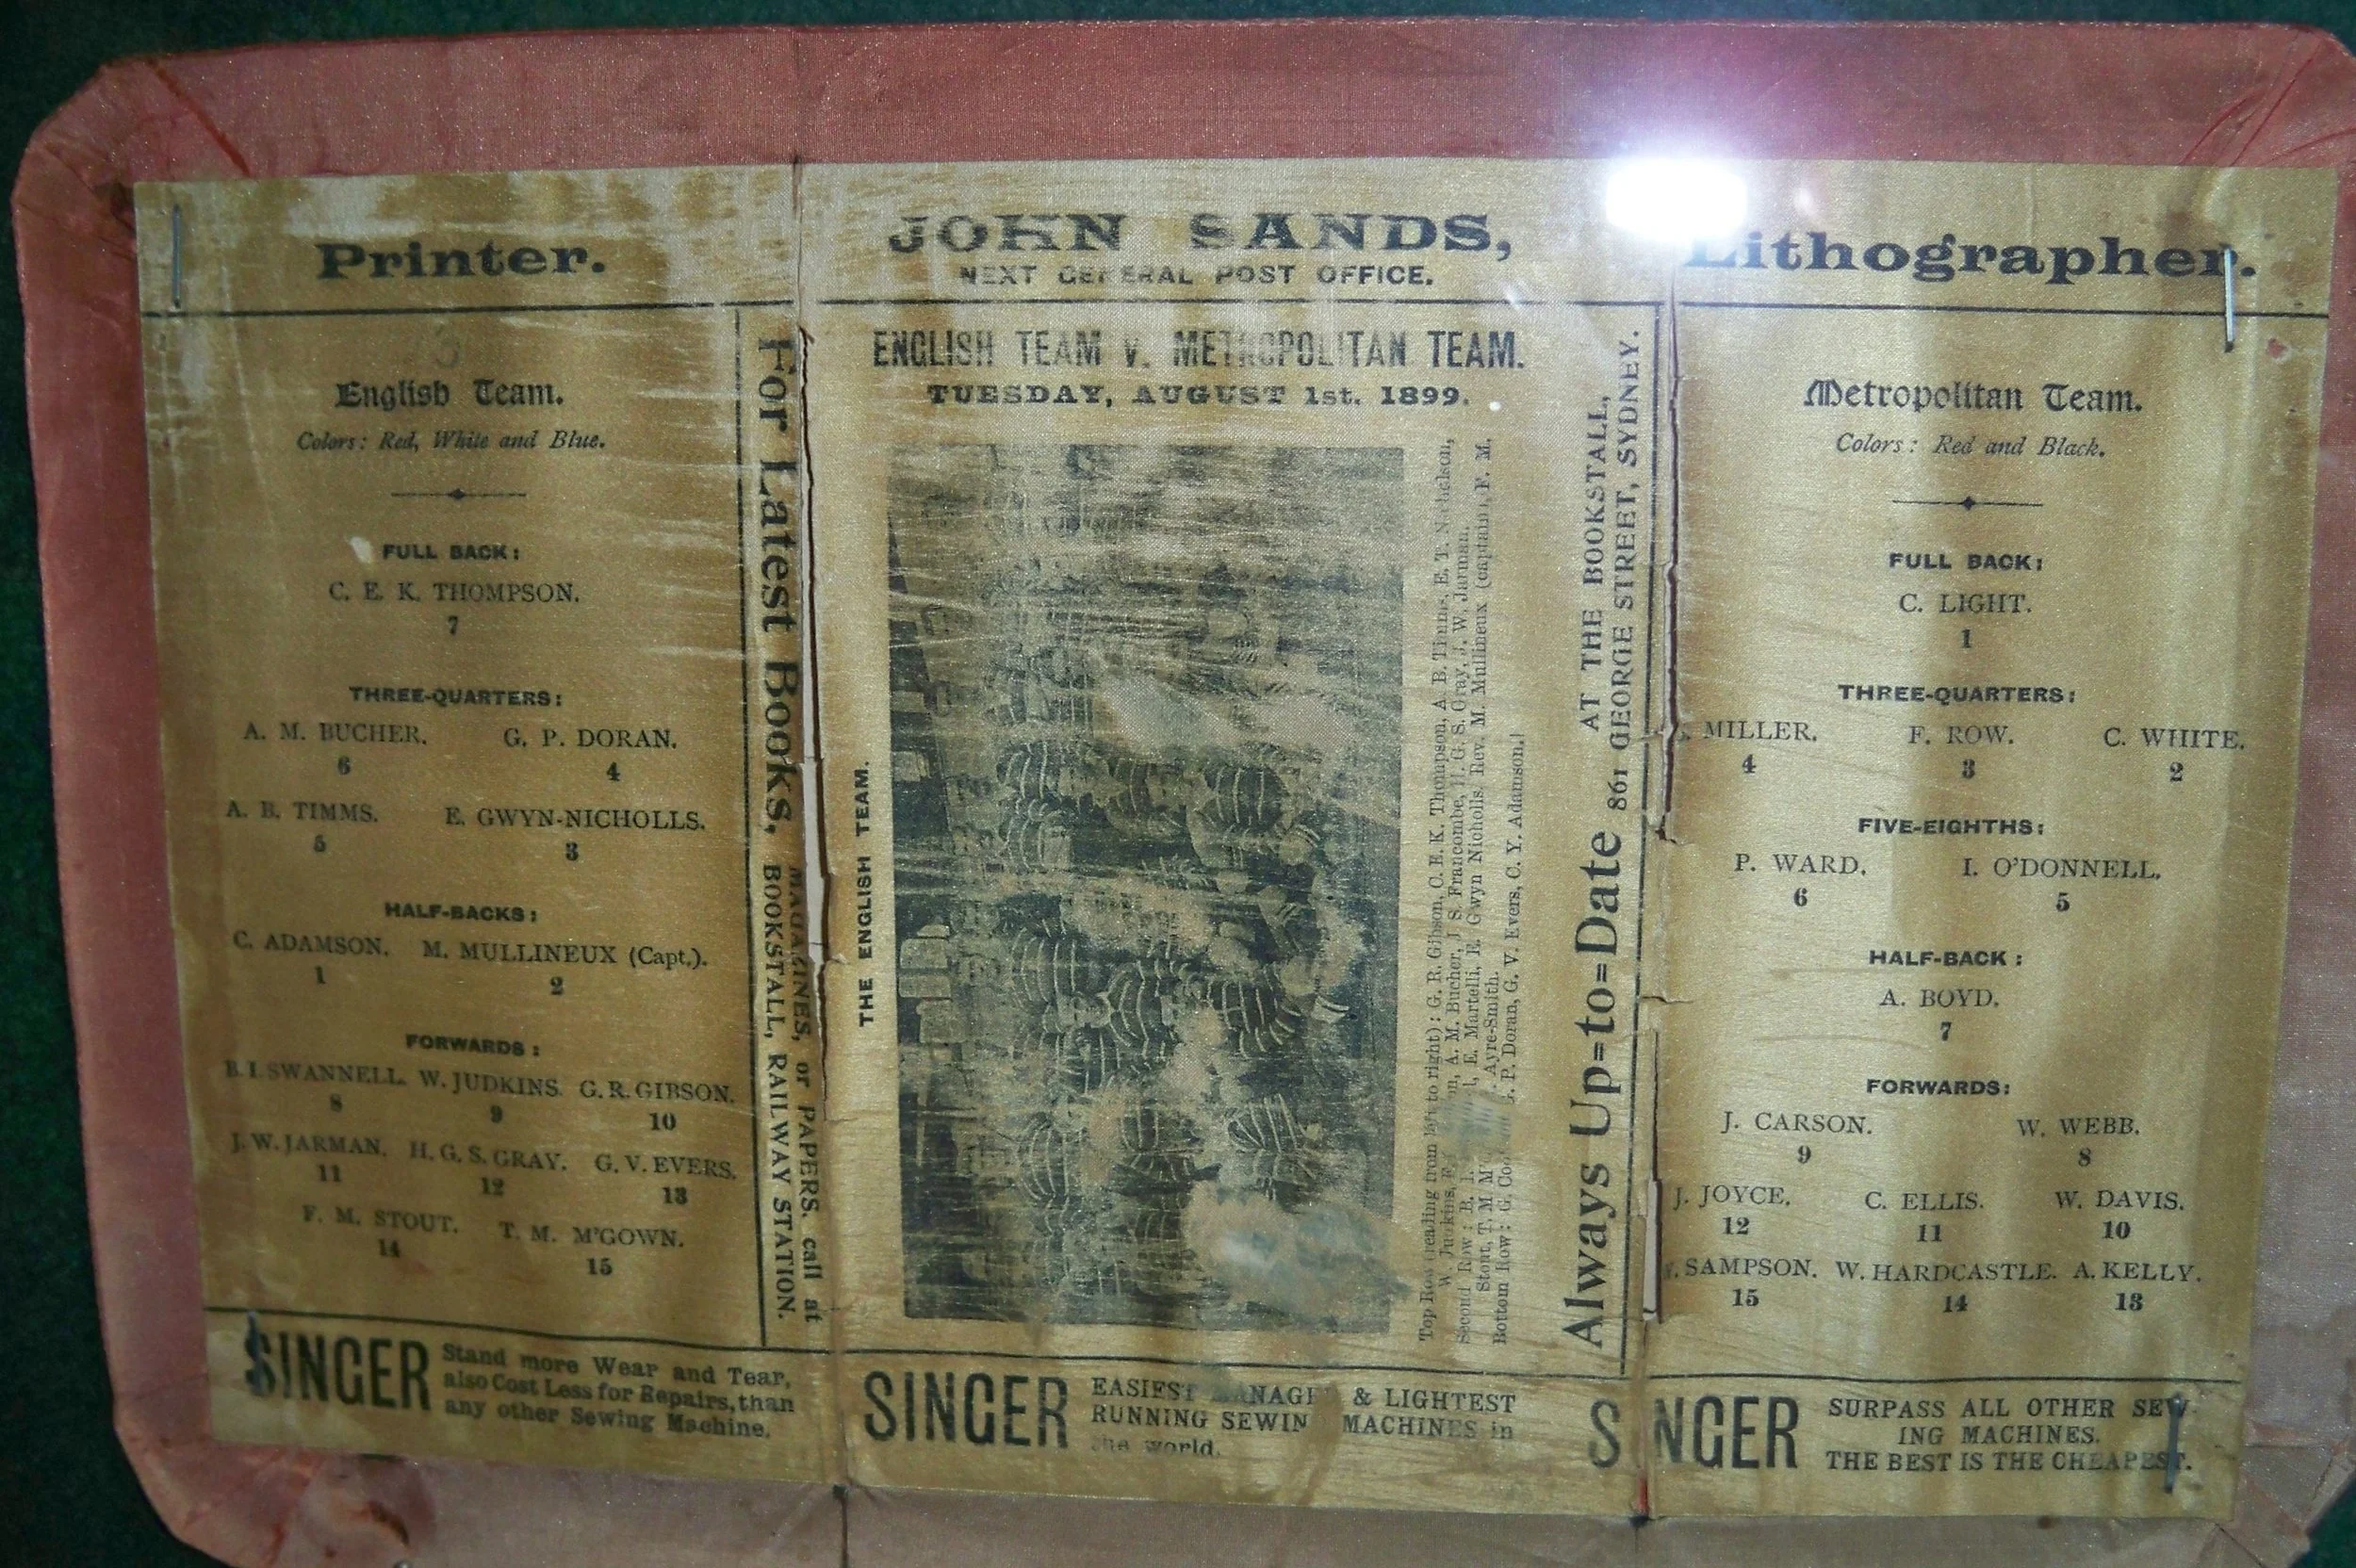 Printer.
JOHN SANDS,
NEXT GENERAL POST OFFICE.
Lithographer.
English Team.
Colors: Red, White and Blue.
FULL BACK:
C. E. K. THOMPSON.
7
THREE-QUARTERS:
A. M. BUCHER. G. P. DORAN.
6 4
A. B. TIMMS. E. GWYN-NICHOLLS.
5 3
HALF-BACKS:
C. ADAMSON. M. MULLINEUX (Capt.).
1 2
FORWARDS:
B. I. SWANNELL. W. JUDKINS. G. R. GIBSON.
8 9 10
J. W. JARMAN. H. G. S. GRAY. G. V. EVERS.
11 12 13
F. M. STOUT. T. M. M'GOWN.
14 15
For Latest Books,
MAGAZINES, or PAPERS, call at
BOOKSTALL, RAILWAY STATION.
ENGLISH TEAM v. METROPOLITAN TEAM.
TUESDAY, AUGUST 1st. 1899.
THE ENGLISH TEAM.
Top Row (reading from left to right): G. R. Gibson, C. E. K. Thompson, A. B. Timms, E. T. Nicholson,
W. Judkins, A. M. Bucher, J. S. Francombe, H. G. S. Gray, J. W. Jarman.
Second Row: B. I. E. Martelli, E. Gwyn Nicholls, Rev. M. Mullineux (captain), F. M.
Stout, T. M. Ayre-Smith.
Bottom Row: G. P. Doran, G. V. Evers, C. Y. Adamson.]
Always Up=to=Date
AT THE BOOKSTALL,
861 GEORGE STREET, SYDNEY.
Metropolitan Team.
Colors: Red and Black.
FULL BACK:
C. LIGHT.
1
THREE-QUARTERS:
MILLER. F. ROW. C. WHITE.
4 3 2
FIVE-EIGHTHS:
P. WARD. I. O'DONNELL.
6 5
HALF-BACK:
A. BOYD.
7
FORWARDS:
J. CARSON. W. WEBB.
9 8
J. JOYCE. C. ELLIS. W. DAVIS.
12 11 10
SAMPSON. W. HARDCASTLE. A. KELLY.
15 14 13
SINGER
Stand more Wear and Tear,
also Cost Less for Repairs, than
any other Sewing Machine.
SINGER
EASIEST & LIGHTEST
RUNNING SEWIN MACHINES in
the world.
S NGER
SURPASS ALL OTHER SEW-
ING MACHINES.
THE BEST IS THE CHEAPEST.